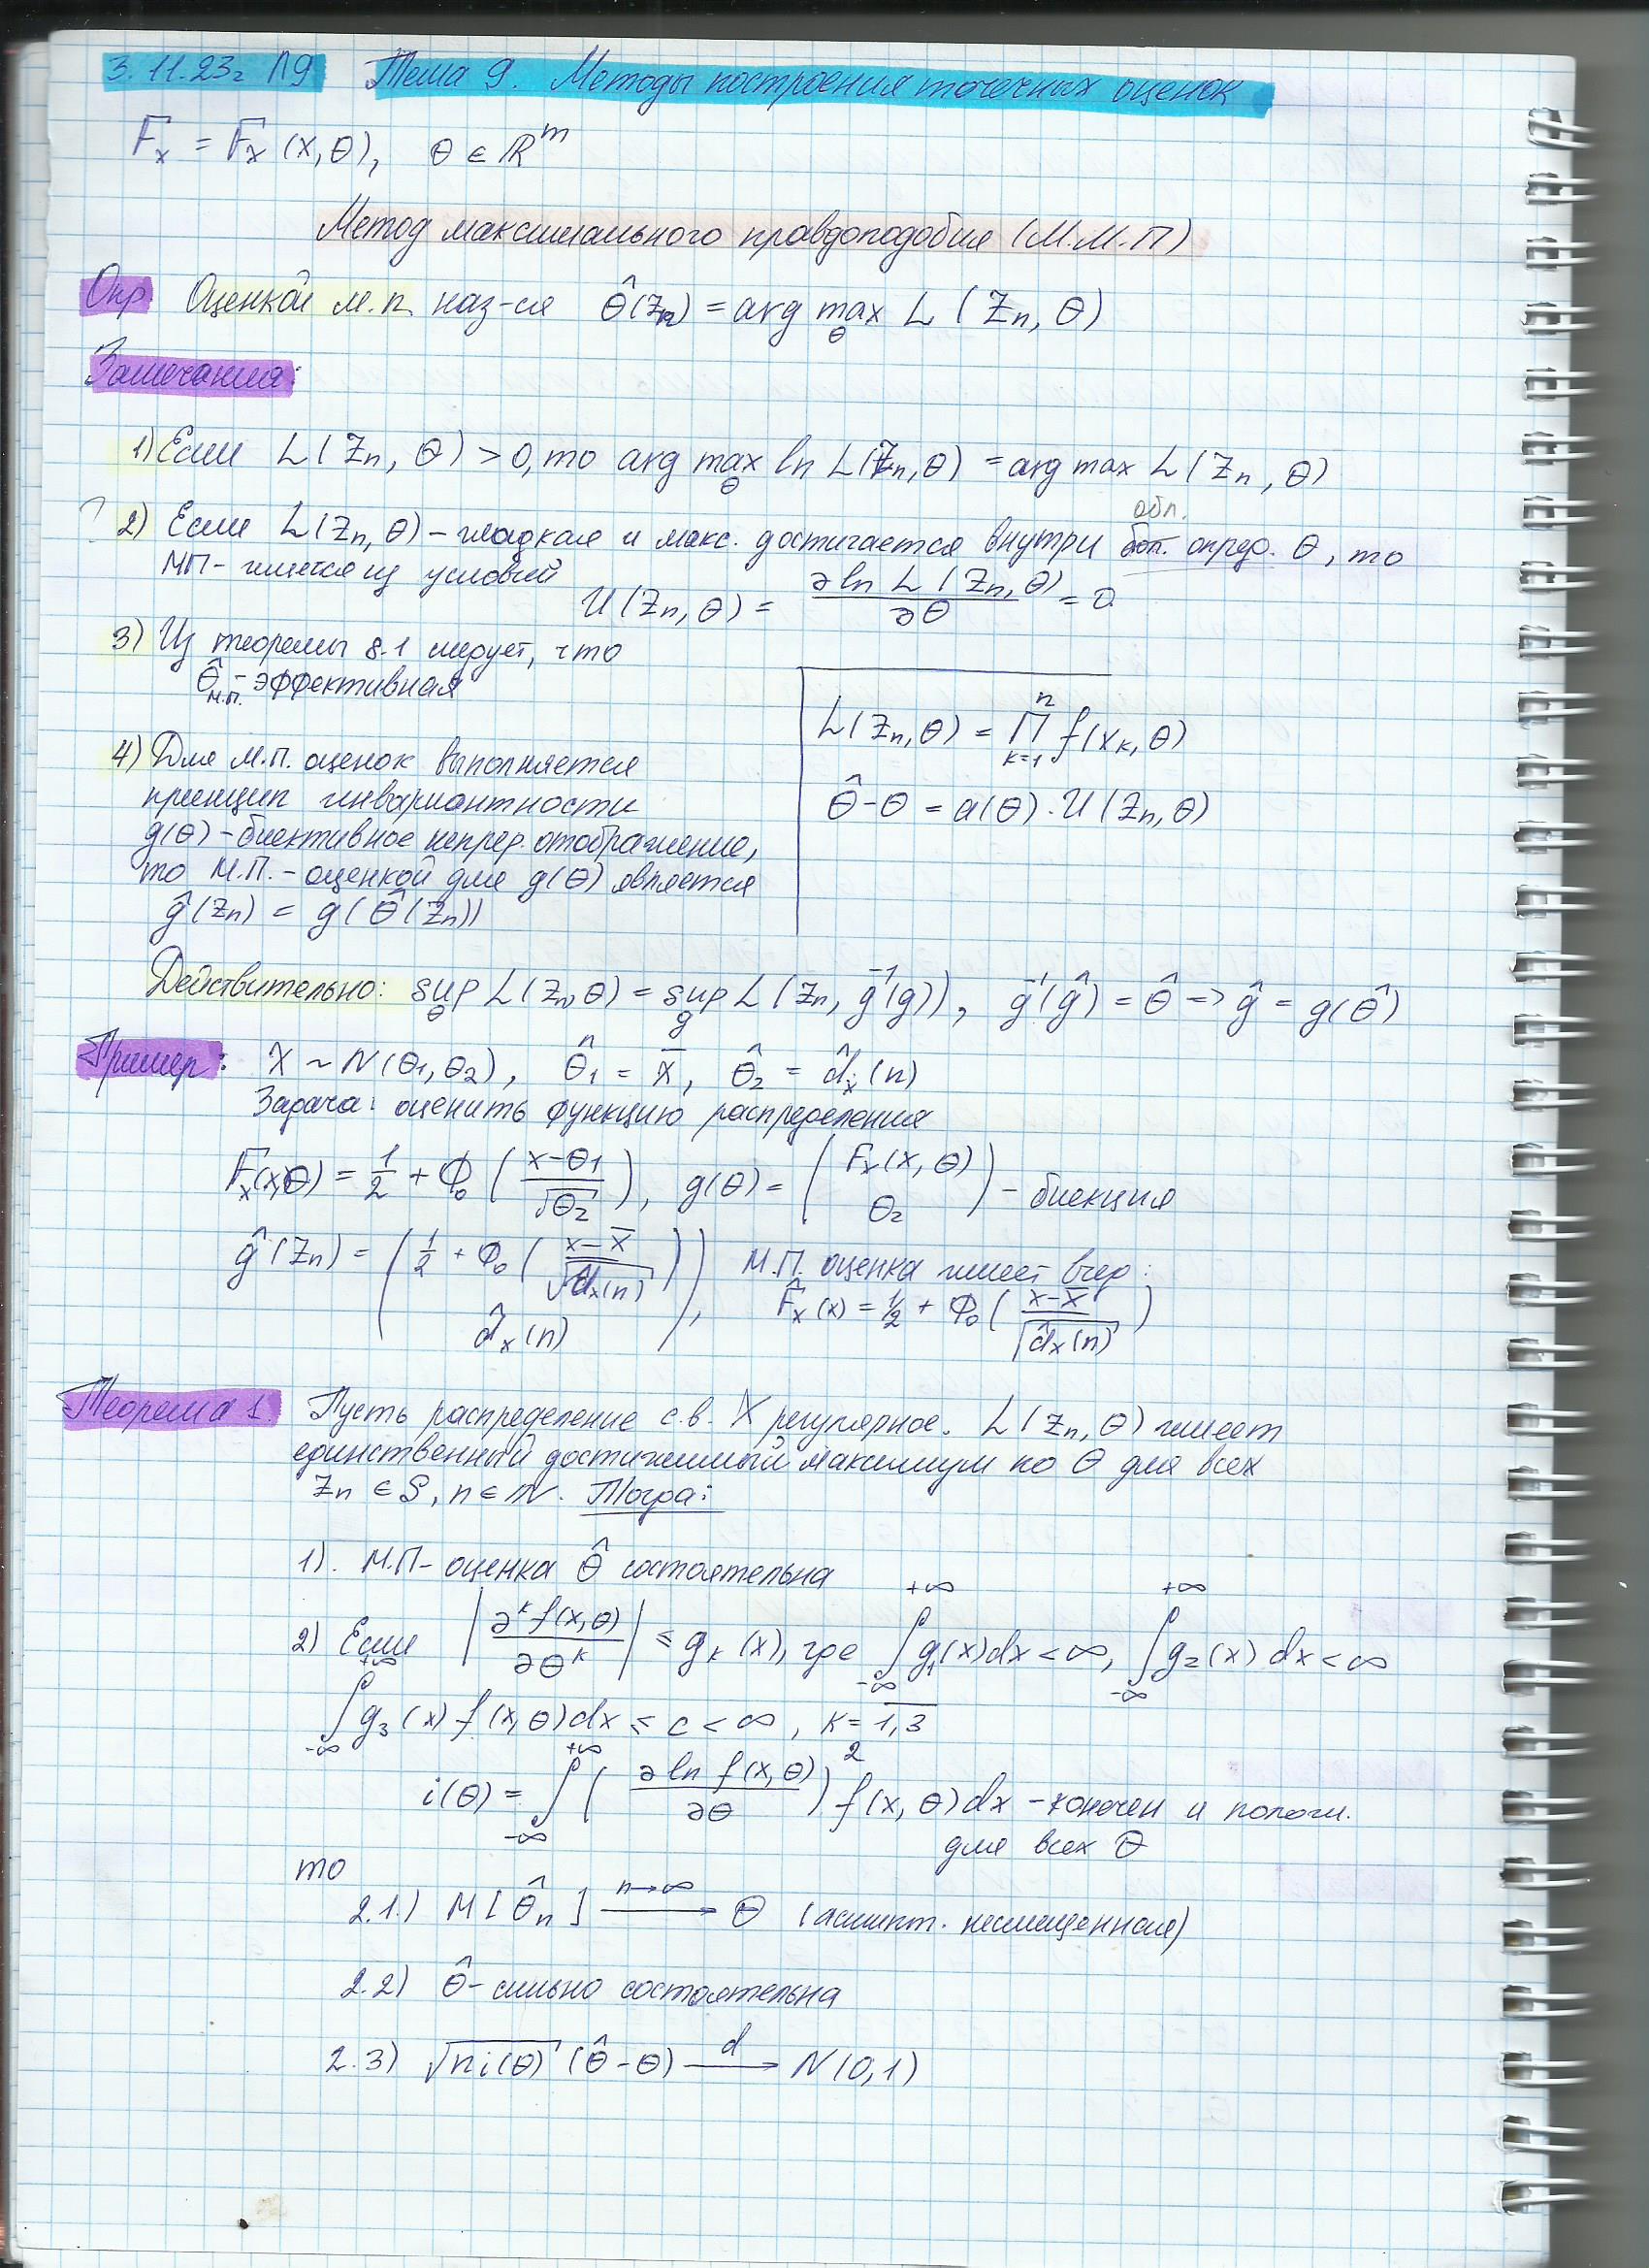 3.11.23г Л9 Тема 9. Методы построения точечных оценок
Fₓ = Fₓ(x, θ), θ ∈ ℝᵐ
Метод максимального правдоподобия (М.М.П)
Опр. Оценкой м.п. наз-ся θ̂(Zₙ) = arg max_θ L(Zₙ, θ)
Замечания:
1) Если L(Zₙ, θ) > 0, то arg max_θ ln L(Zₙ, θ) = arg max L(Zₙ, θ)
обл.
? 2) Если L(Zₙ, θ) – гладкая и макс. достигается внутри опред. θ, то
МП – ищется из условий
U(Zₙ, θ) = ∂ ln L(Zₙ, θ) / ∂θ = 0
3) Из теоремы 8.1 следует, что
θ̂ м.п. – эффективная
4) Для М.П. оценок выполняется
принцип инвариантности
g(θ) – биективное непрер. отображение,
то М.П. – оценкой для g(θ) является
ĝ(Zₙ) = g(θ̂(Zₙ))
L(Zₙ, θ) = ∏_{k=1}^{n} f(x_k, θ)
θ̂ – θ = a(θ) · U(Zₙ, θ)
Действительно: sup_θ L(Zₙ, θ) = sup_g L(Zₙ, g⁻¹(g)), g⁻¹(ĝ) = θ̂ => ĝ = g(θ̂)
Пример: X ~ N(θ₁, θ₂), θ̂₁ = X̄, θ̂₂ = d̂ₓ(n)
Задача: оценить функцию распределения
Fₓ(x,θ) = 1/2 + Φ₀((x–θ₁)/√θ₂), g(θ) = (Fₓ(x, θ) ; θ₂) – биекция
ĝ(Zₙ) = (1/2 + Φ₀((x–X̄)/√d̂ₓ(n)) ; d̂ₓ(n)), М.П. оценка имеет вид:
F̂ₓ(x) = 1/2 + Φ₀((x–X̄)/√d̂ₓ(n))
Теорема 1. Пусть распределение с.в. X регулярное. L(Zₙ, θ) имеет
единственный достижимый максимум по θ для всех
Zₙ ∈ S, n ∈ N. Тогда:
1). М.П – оценка θ̂ состоятельна
2) Если |∂ᵏf(x,θ)/∂θᵏ| ≤ gₖ(x), где ∫_{-∞}^{+∞} g₁(x)dx < ∞, ∫_{-∞}^{+∞} g₂(x) dx < ∞
∫_{-∞}^{+∞} g₃(x) f(x, θ)dx ≤ c < ∞, k = 1,3
i(θ) = ∫_{-∞}^{+∞} (∂ ln f(x, θ)/∂θ)² f(x, θ)dx – конечен и полож.
для всех θ
то
2.1.) M[θ̂ₙ] —n→∞→ θ (асимпт. несмещенная)
2.2) θ̂ – сильно состоятельна
2.3) √(n i(θ)) (θ̂ – θ) —d→ N(0,1)